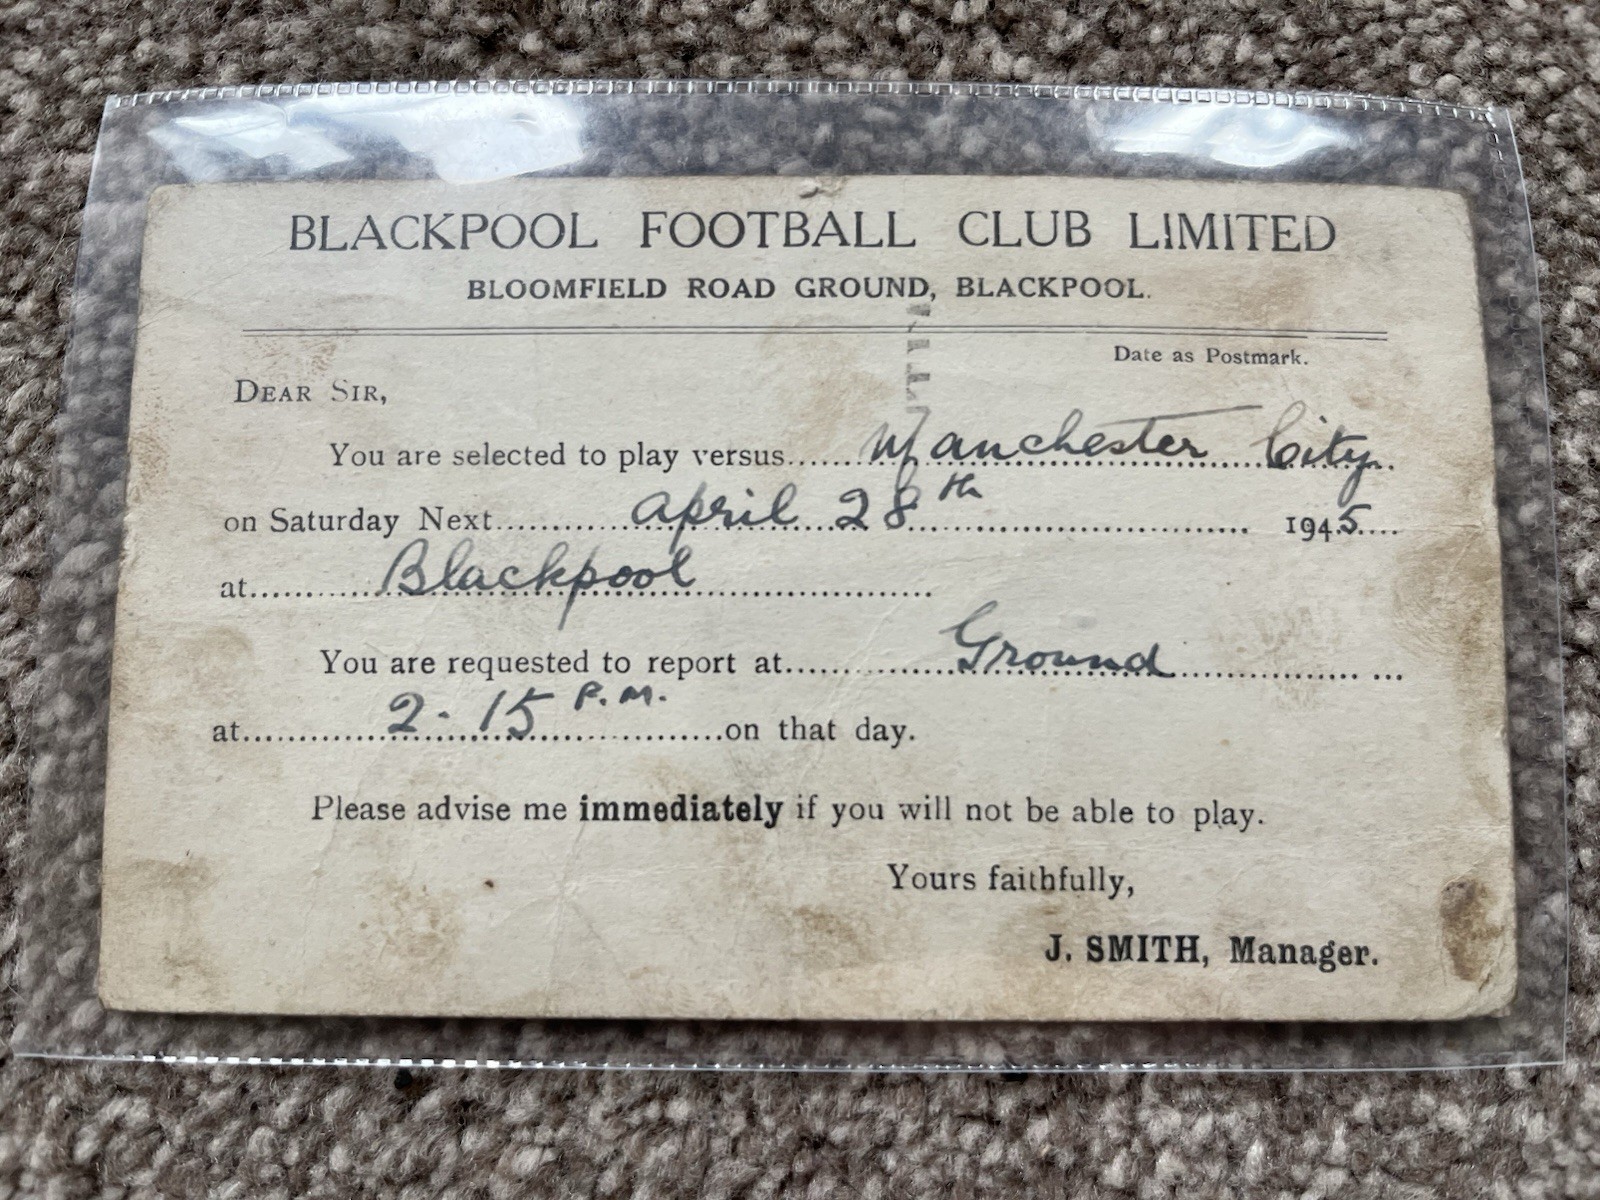 BLACKPOOL FOOTBALL CLUB LIMITED
BLOOMFIELD ROAD GROUND, BLACKPOOL.
Date as Postmark.
DEAR SIR,
You are selected to play versus......Manchester City..
on Saturday Next..........April 28th.......................... 1945....
at..........Blackpool....................
You are requested to report at............Ground................ ...
at............2.15 P.M.............on that day.
Please advise me immediately if you will not be able to play.
Yours faithfully,
J. SMITH, Manager.